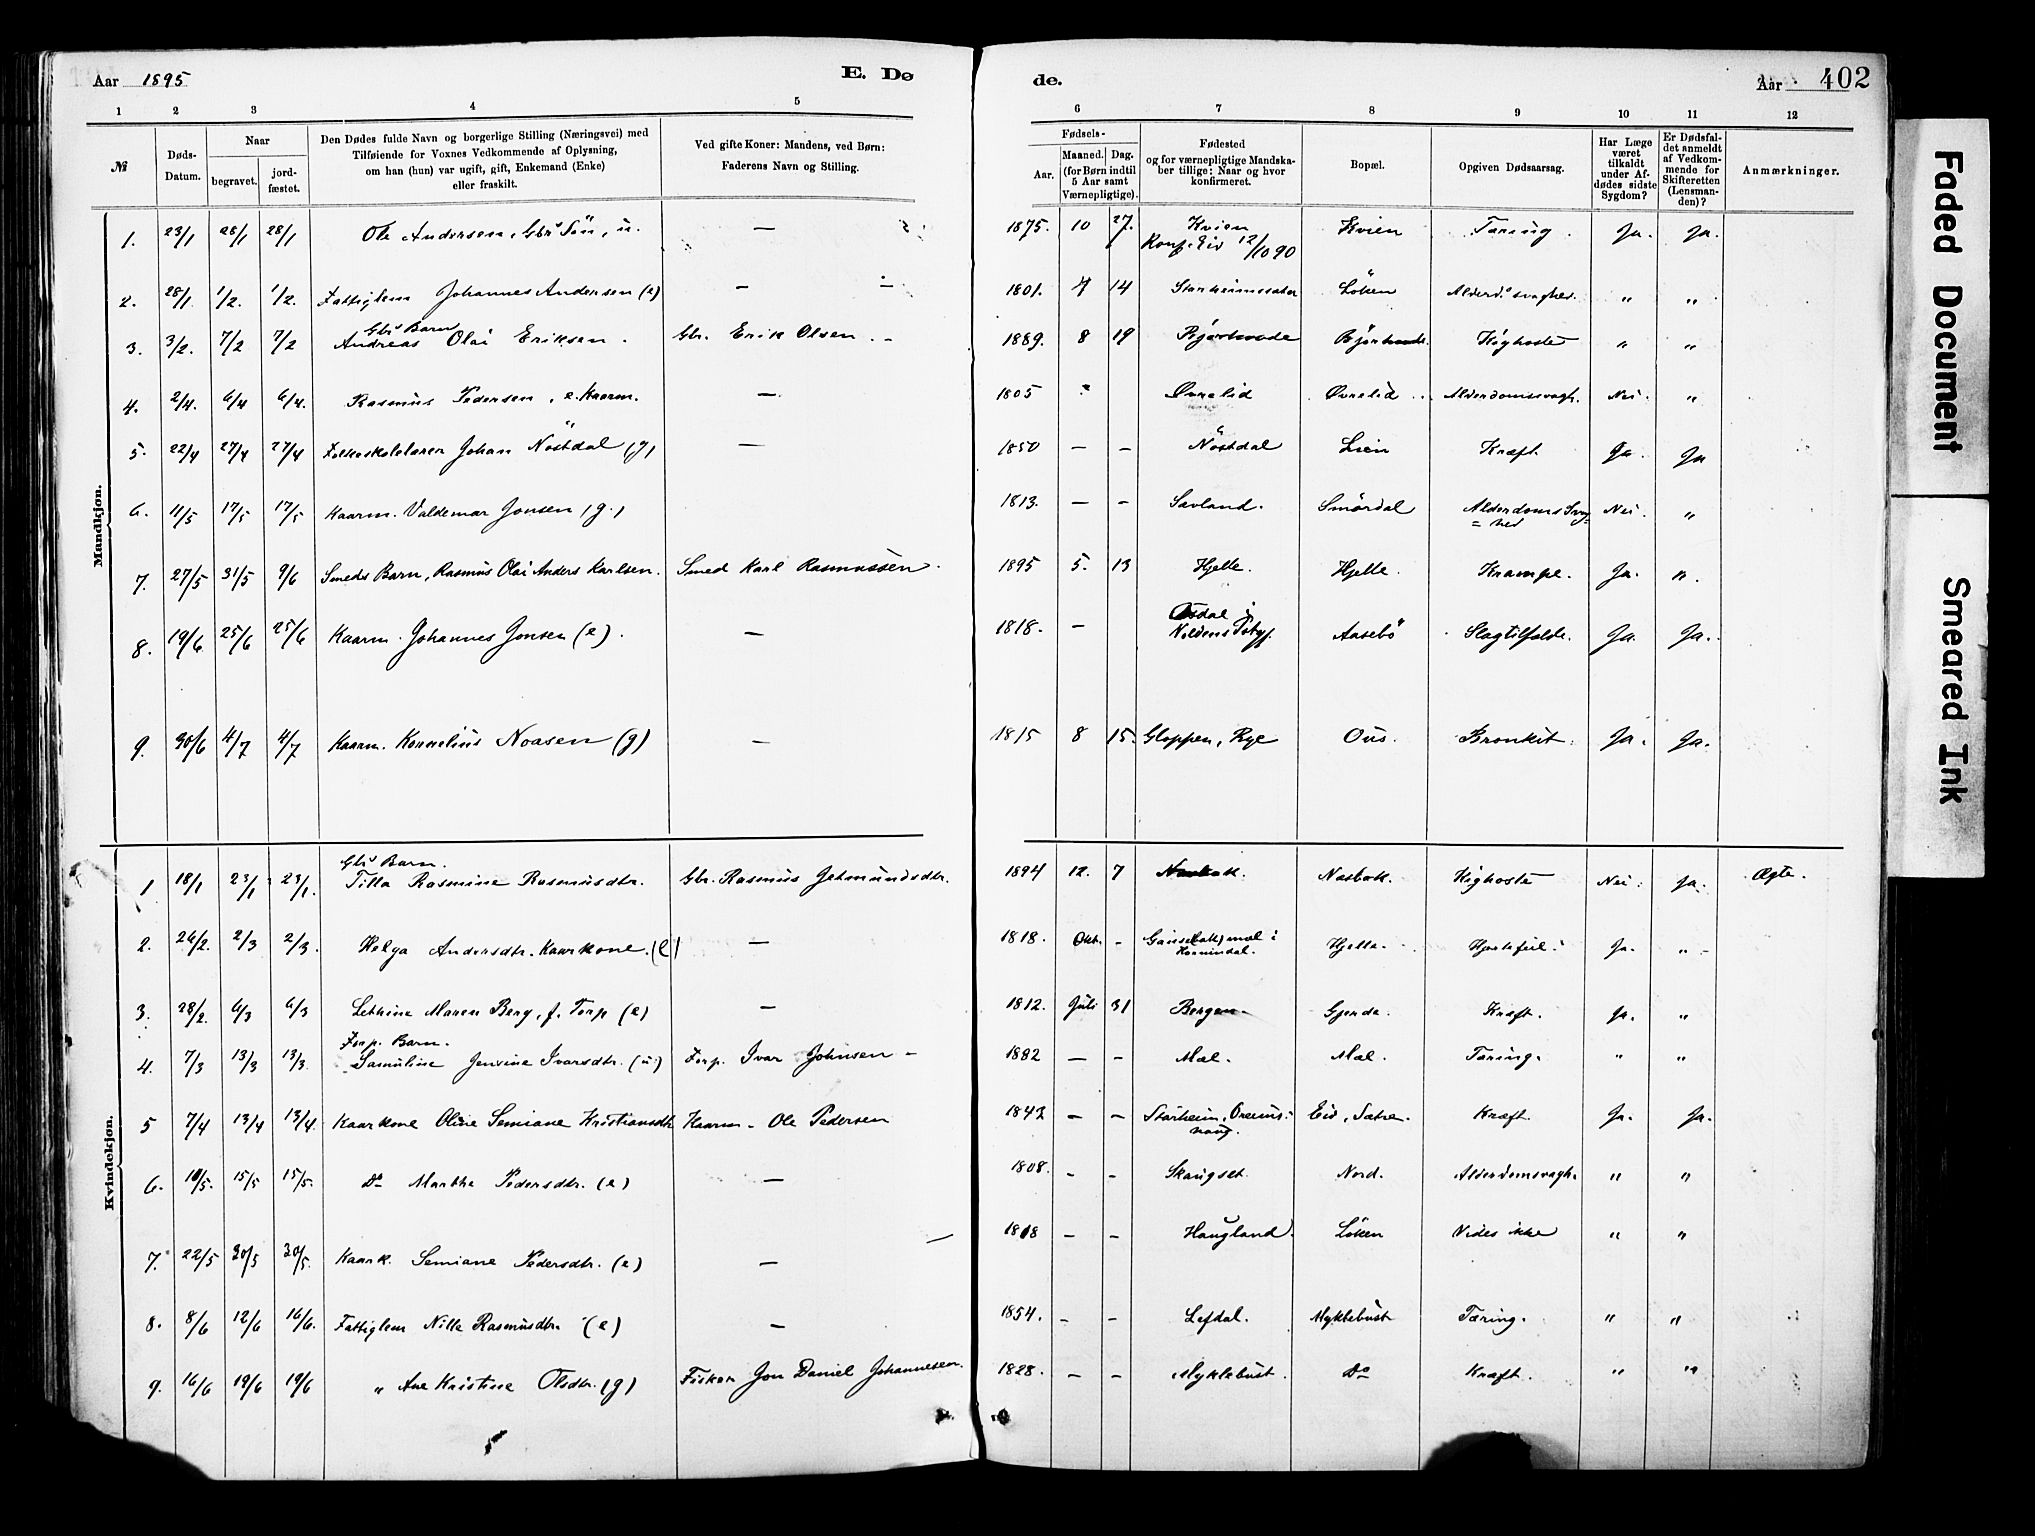 Aar 1895
E. Dø
de.
Aar 402
1 2 3 4 5 6 7 8 9 10 11 12
№
Døds-Datum.
Naar
begravet.
jord-fæstet.
Den Dødes fulde Navn og borgerlige Stilling (Næringsvei) med
Tilføiende for Voxnes Vedkommende af Oplysning,
om han (hun) var ugift, gift, Enkemand (Enke)
eller fraskilt.
Ved gifte Koner: Mandens, ved Børn:
Faderens Navn og Stilling.
Fødsels-
Aar.
Maaned. Dag.
(for Børn indtil
5 Aar samt
Værnepligtige).
Fødested
og for værnepligtige Mandska-
ber tillige: Naar og hvor
konfirmeret.
Bopæl.
Opgiven Dødsaarsag.
Har Læge
været
tilkaldt
under Af-
dødes sidste
Sygdom?
Er Dødsfal-
det anmeldt
af Vedkom-
mende for
Skifteretten
(Lensman-
den)?
Anmærkninger.
Mandkjøn.
1. 23/1 28/1 28/1 Ole Andersen, Gbrs Sön, u. — 1875. 10 27. Kvien Kvien Tæring. Ja. Ja.
Konf. Eid 12/10 90
2. 28/1 1/2. 1/2. Fattiglem Johannes Andersen (e) — 1801. 7 14 Starheimssæter Löken Alderd.svaghed. " "
Gbrs Barn
3. 3/2. 7/2 7/2 Andreas Olai Eriksen. Gbr. Erik Olsen. 1889. 8 19 Kighoste " "
4. 2/4. 6/4 6/4. Rasmus Pedersen, e. Kaarm. — 1805 Øvrelid Øvrelid Alderdomssvagh. Nei. "
5. 22/4 27/4 27/4 Folkeskolelærer Johan Nöstdal (g) — 1850 — — Nöstdal Lien Kræft. Ja. Ja
6. 11/5 17/5 17/5 Kaarm. Valdemar Jonsen (g.) 1813. — — Savland. Smördal Alderdoms Svag= Nei. "
=hed
7. 27/5 31/5 9/6 Smeds Barn, Rasmus Olai Anders Karlsen. Smed Karl Rasmussen. 1895 5. 13 Hjelle. Hjelle. Krampe. Ja. ".
8. 19/6 25/6 25/6 Kaarm. Johannes Jonsen (e). — 1818. — Osdal i Aasebö Slagtilfælde. Ja. Ja.
9. 30/6 4/7 4/7 Kaarm. Kornelius Noasen (g) — 1815 8 15. Gloppen, Rye Ous. Bronkit. Ja. Ja.
Kvindekjøn.
Gbrs Barn.
1 18/1 23/1 23/1. Tilla Rasmine Rasmusdtr. Gbr. Rasmus Getmundsdtr. 1894 12. 7 Nosbak. Nosbak. Kighoste Nei. Ja. Ægte.
2. 26/2. 2/3 2/3. Helga Andersdtr. Kaarkone. (e) — 1818. Okt. - Hjelle. Hjertefeil. Ja. "
Hornindal.
3. 28/2. 6/3 6/3 Maren Berg, f. Torp (e) — 1812. Juli 31 Bergen. Gjerde. Kræft. Ja. "
Forp. Barn.
4. 7/3 13/3 13/3. Samuline Jensine Ivarsdtr. (u.) Forp. Ivar Johnsen - 1882 — - Mæl. Mæl. Tæring. " "
5 7/4 13/4 13/4. Kaarkone Oline Semiane Kristiansdtr Kaarm. Ole Pedersen 1842 — — Starheim, Eid, Sætre. Kræft. Ja. Ja.
6. 10/5. 15/5 15/5. Do Marthe Pedersdtr. (e) — 1808. - - Skaugset. Nord. Alderdomsvagh. " "
7. 22/5 30/5 30/5. Kaark. Semiane Pedersdtr. (e) — 1818 - - Haugland. Löken Vides ikke " "
8. 8/6 12/6 16/6. Fattiglem Nille Rasmusdtr. (e) — 1854. - - Lefdal. Myklebust Tæring. " "
9. 16/6 19/6 19/6 " Ane Kristine Olsdtr. (g) Fisker Jon Daniel Johannesen. 1828. - - Myklebust. Do Kræft. " "
Faded Document
Smeared Ink